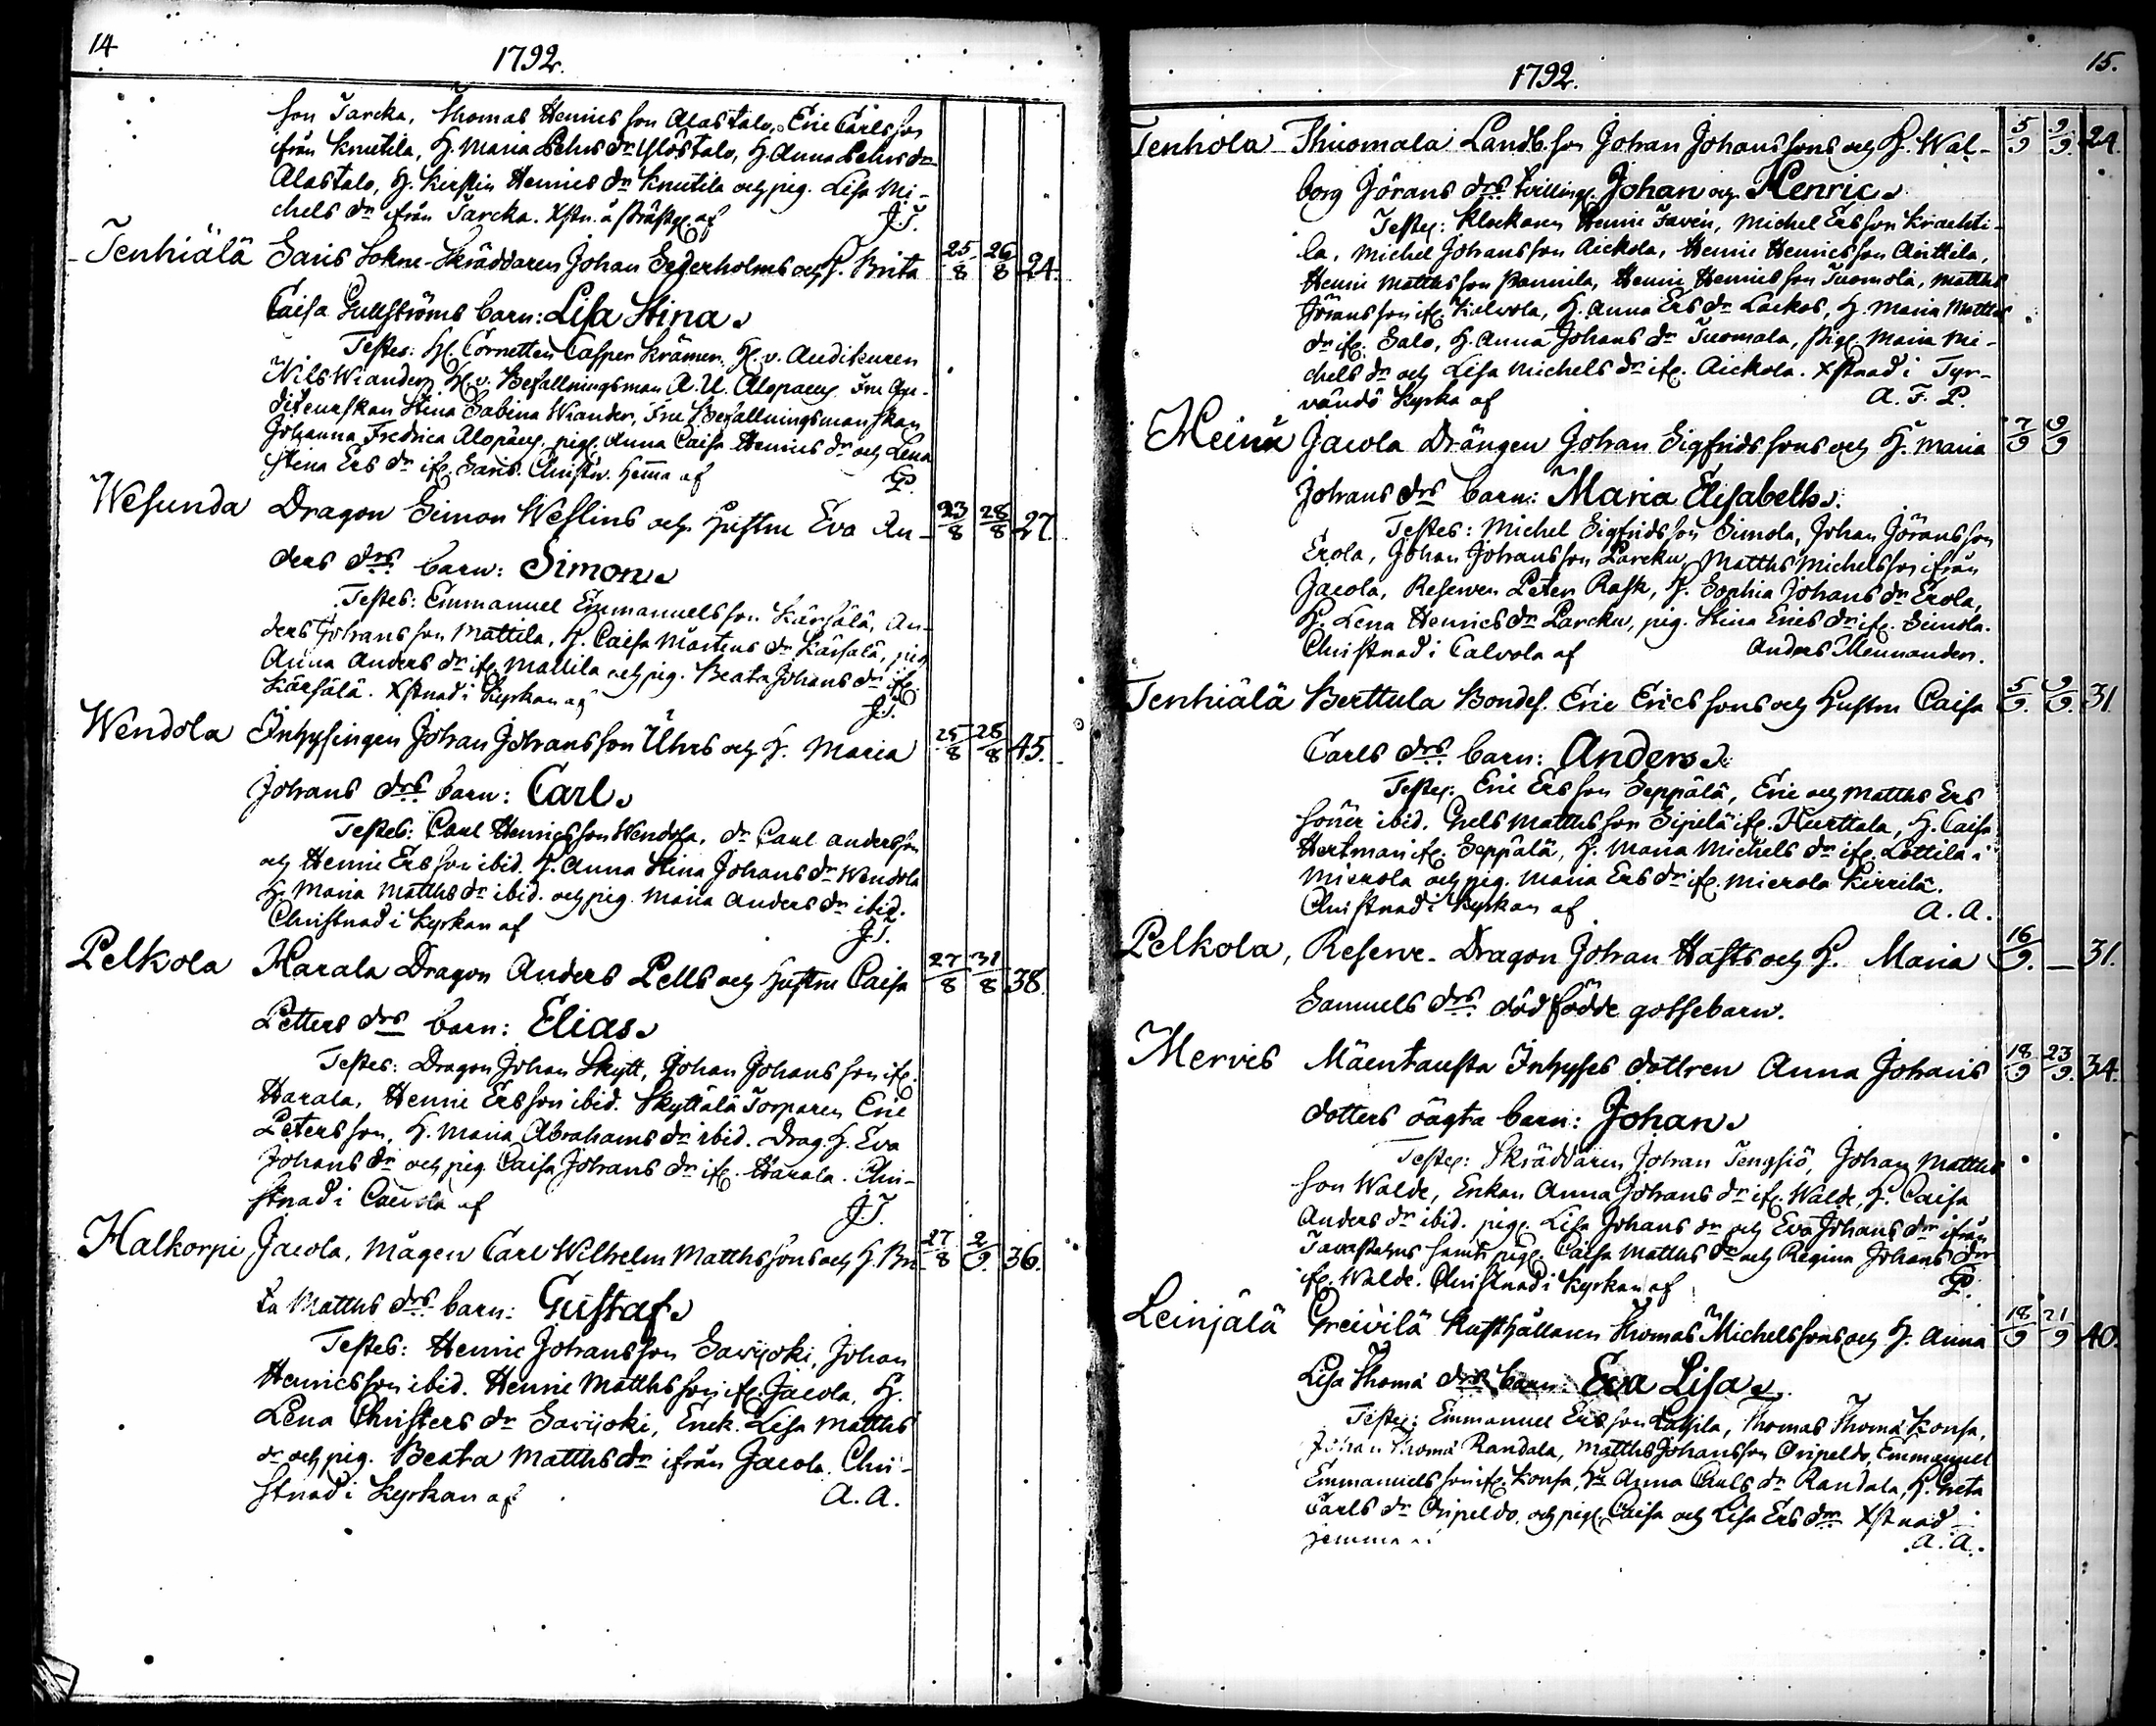 14
1792.
son Jarcka, Thomas Henrics son Alastalo, Eric Carlsson
ifrån Knutila, H. Maria Pehrs dr Ylöstalo, H. Anna Pehrs dr
Alastalo, H. Kirstin Henrics dr Knutila och pig. Lisa Mi-
chels dr ifrån Jarcka. Xstn. å prästg. af J.T.
Tenhiälä Saris Sokne-Skräddaren Johan Segerholms och H. Brita 25/8 26/8 24.
Caisa Gullströms barn: Lisa Stina.
Testes: H. Cornetten Casper Krämer, H. v. Auditeuren
Nils Wiander, H. v. Befallningsman A. U. Alopaeus, Fru Au-
diteurskan Stina Sabina Wiander, Fru Befallningsmanskan
Johanna Fredrica Alopæus, pig. Anna Caisa Henrics dr och Lena
Stina Ers dr ifr. Saris. Christn. hemma af P.
Wesunda Dragon Simon Weslins och hustru Eva An- 23/8 28/8 27.
ders drs barn: Simon.
Testes: Emmanuel Emmanuelsson Kärsälä, An-
ders Johansson Mattila, H. Caisa Mårtens dr Kärsälä, pig.
Anna Anders dr ifr. Mattila och pig. Beata Johans dr ifr.
Kärsälä. Xstnad i Kyrkan af J.T.
Wendola Inhysingen Johan Johansson Uhrs och H. Maria 25/8 26/8 45.
Johans drs barn: Carl.
Testes: Carl Henricsson Wendola, dr Carl Andersson
och Henric Ersson ibid. H. Anna Stina Johans dr Wendola
H. Maria Matths dr ibid. och pig. Maria Anders dr ibid.
Christnad i Kyrkan af J.T.
Pelkola Harala Dragon Anders Pells och hustru Caisa 27/8 31/8 38.
Petters drs barn: Elias.
Testes: Dragon Johan Skytt, Johan Johansson ifr.
Harala, Henric Ersson ibid. Skyttälä Torparen Eric
Petersson, H. Maria Abrahams dr ibid. Drag. H. Eva
Johans dr och pig. Caisa Johans dr ifr. Harala. Chri-
stnad i Calvola af J.T.
Halkorpi Jacola, Mågen Carl Wilhelm Matthssons och H. Bri- 27/8 2/9. 36.
ta Matths drs barn: Gustaf.
Testes: Henric Johansson Sawijoki, Johan
Henricsson ibid. Henric Matthsson ifr. Jacola, H.
Lena Christers dr Sawijoki, Enck. Lisa Matths
dr och pig. Beata Matths dr ifrån Jacola. Chri-
stnad i Kyrkan af A.A.
15.
1792.
Tenhola Thuomala Landb. son Johan Johanssons och H. Wal- 5/9 9/9. 24.
borg Jörans drs tvilling. Johan och Henric.
Testes: Klockaren Henric Favén, Michel Ersson Krachti-
la, Michel Johansson Aickola, Henric Henricsson Anttila,
Henric Matthsson Pannila, Henric Henricsson Tuomola, Matths
Jöransson ifr. Kalvola, H. Anna Ers dr Lackos, H. Maria Matths
dr ifr. Salo, H. Anna Johans dr Tuomala, pig. Maria Mi-
chels dr och Lisa Michels dr ifr. Aickola. Xstnad i Tyr-
vändö Kyrka af A. F. P.
Heinu Jacola Drängen Johan Sigfridssons och H. Maria 7/9 9/9
Johans drs barn: Maria Elisabeth.
Testes: Michel Sigfridsson Simola, Johan Jöransson
Erola, Johan Johansson Parcku, Matths Michelsson ifrån
Jacola, Reserven Peter Rask, H. Sophia Johans dr Erola,
H. Lena Henrics dr Parcku, pig. Stina Erics dr ifr. Simola.
Christnad i Calvola af Anders Mennander.
Tenhiälä Berttula Bondes. Eric Ericssons och hustru Caisa 5/9. 9/9. 31
Carls drs barn: Anders.
Testes: Eric Ersson Seppälä, Eric och Matths Ers
söner ibid. Nels Matthsson Sipelä ifr. Kurttala, H. Caisa
Hertman ifr. Seppälä, H. Maria Michels dr ifr. Lottila i
Mierola och pig. Maria Ers dr ifr. Mierola Kirrilä.
Christnad i Kyrkan af A.A.
Pelkola, Reserve-Dragon Johan Hasts och H. Maria 16/9. — 31.
Samuels drs. dödfödde gossebarn.
Mervis Mäentausta Inhyses dottren Anna Johans 18/9 23/9. 34.
dotters oägta barn: Johan.
Testes: Skräddaren Johan Tengsiö, Johan Matths
son Walde, Enkan Anna Johans dr ifr. Walde, H. Caisa
Anders dr ibid. pigr. Lisa Johans dr och Eva Johans dr ifrån
Tavastehus samt pigr. Caisa Matths dr och Regina Johans dr
ifr. Walde. Christnad i Kyrkan af P.
Leinjälä Greivilä Rusthållaren Thomas Michelssons och H. Anna 18/9 21/9 40.
Lisa Thomæ drs barn: Eva Lisa.
Testes: Emmanuel Ersson Lassila, Thomas Thomæ Konsa,
Johan Thomæ Randala, Matths Johansson Oripeldo, Emmanuel
Emmanuelsson ifr. Konsa, H. Anna Carls dr Randala, H. Greta
Carls dr Oripeldo, och pigr. Caisa och Lisa Ers dr. Xstnad
hemma A.A.